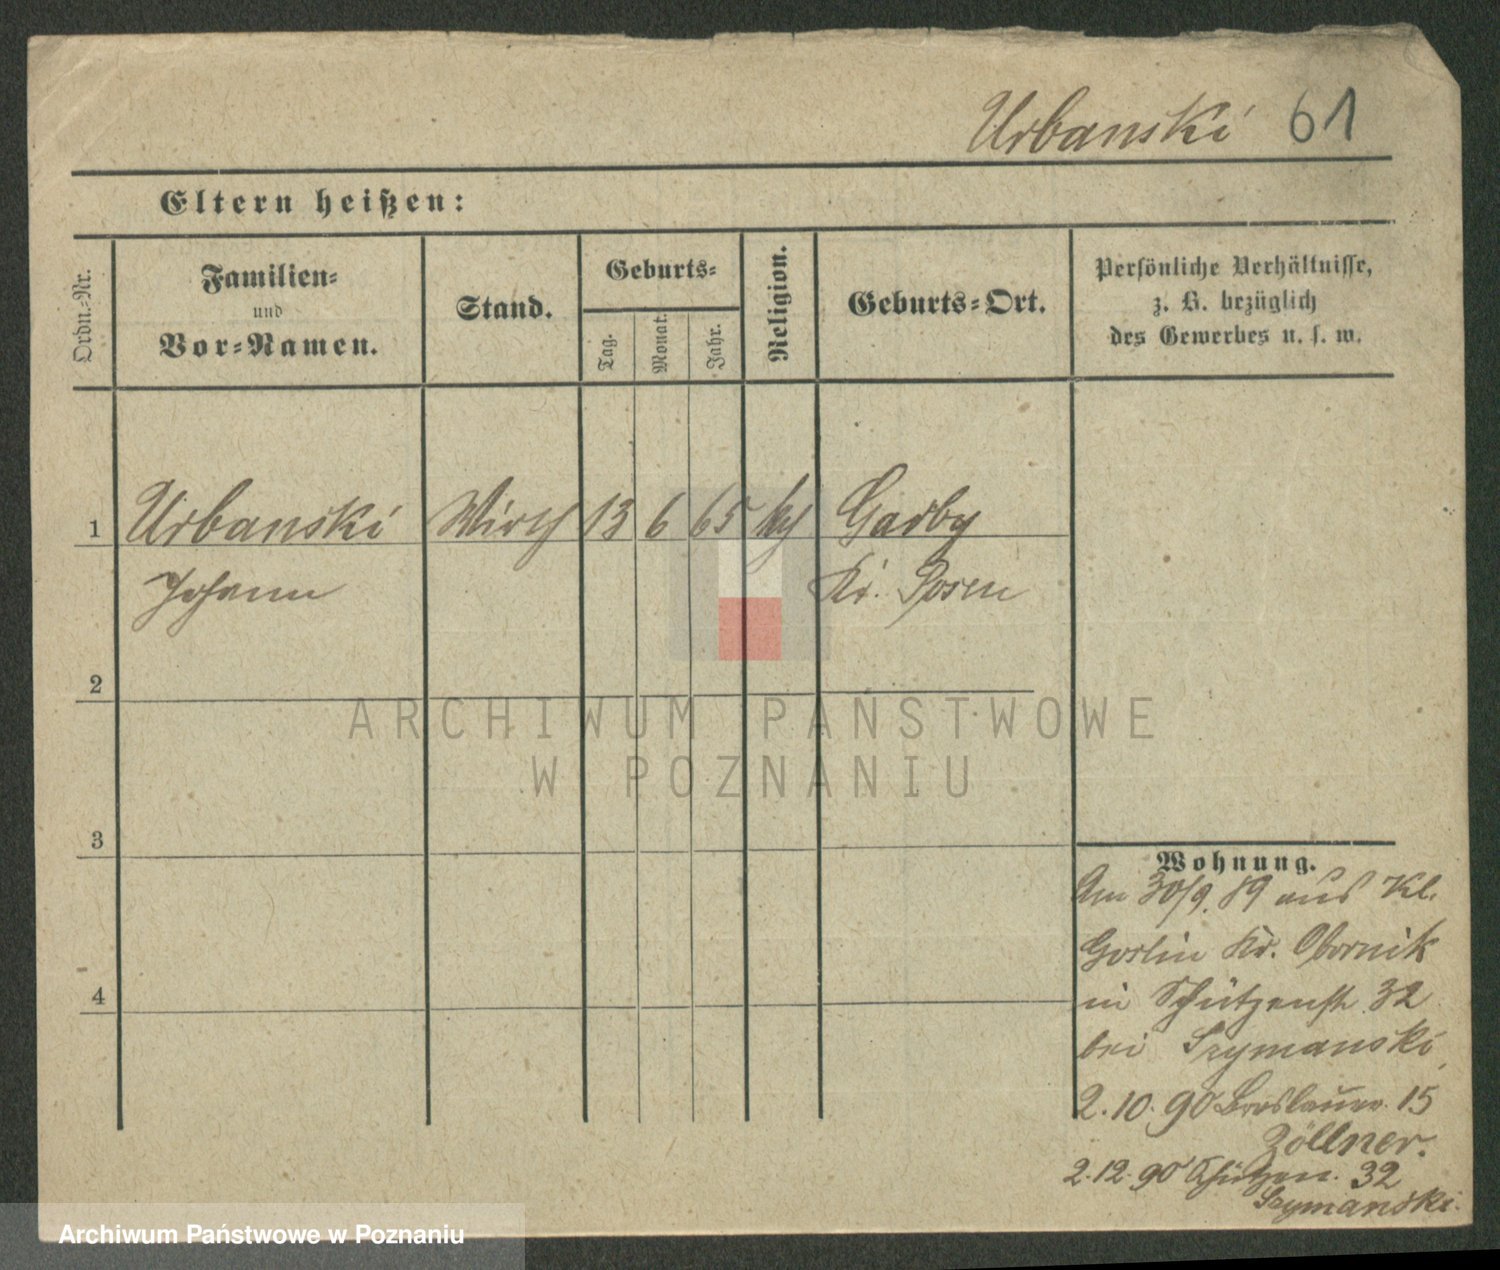 Urbanski 61
Eltern heißen:
Ordn.-Nr.
Familien-
und
Vor-Namen.
Stand.
Geburts-
Tag.
Monat.
Jahr.
Religion.
Geburts-Ort.
Persönliche Verhältnisse,
z. B. bezüglich
des Gewerbes u. s. w.
1 Urbanski Wirth 13 6 65 Garby
Johann Kr. Posen
2
3
4
Wohnung.
Am 30/9. 89 aus Kl.
Goslin Kr. Obornik
in Schützenstr. 32
bei Szymanski
2.10.90 Breslauer. 15
Zöllner.
2.12.90 Schützen. 32
Szymanski.
ARCHIWUM PAŃSTWOWE
W POZNANIU
Archiwum Państwowe w Poznaniu